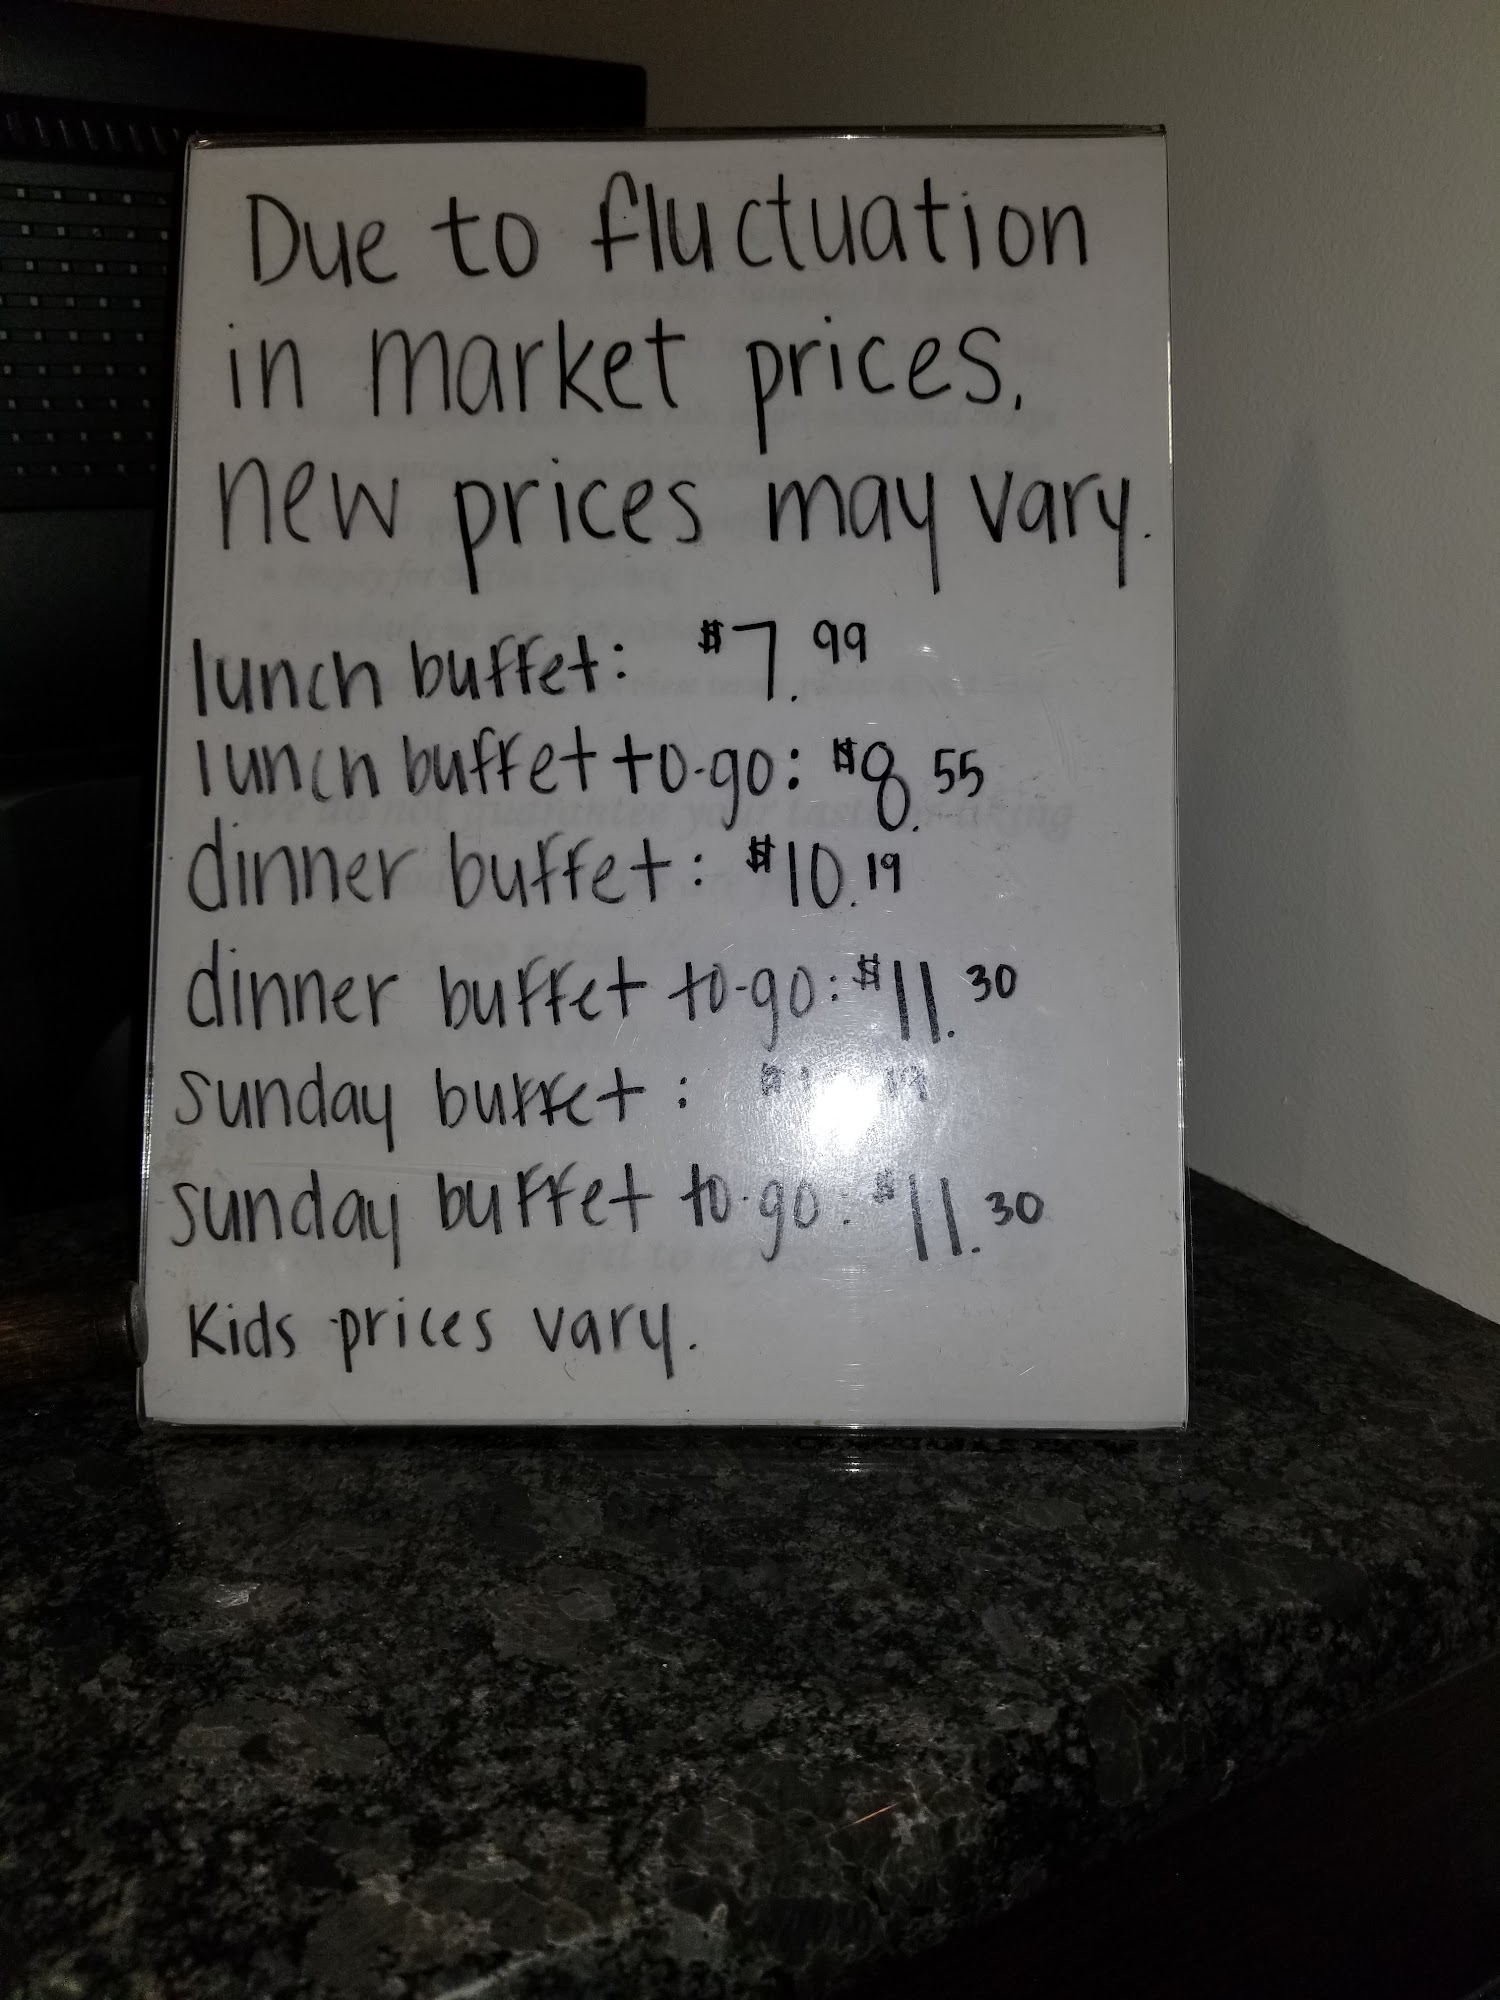 Due to fluctuation
in market prices,
new prices may vary.
lunch buffet: $7.99
lunch buffet to-go: $8.55
dinner buffet: $10.19
dinner buffet to-go: $11.30
sunday buffet:
sunday buffet to-go: $11.30
Kids prices vary.